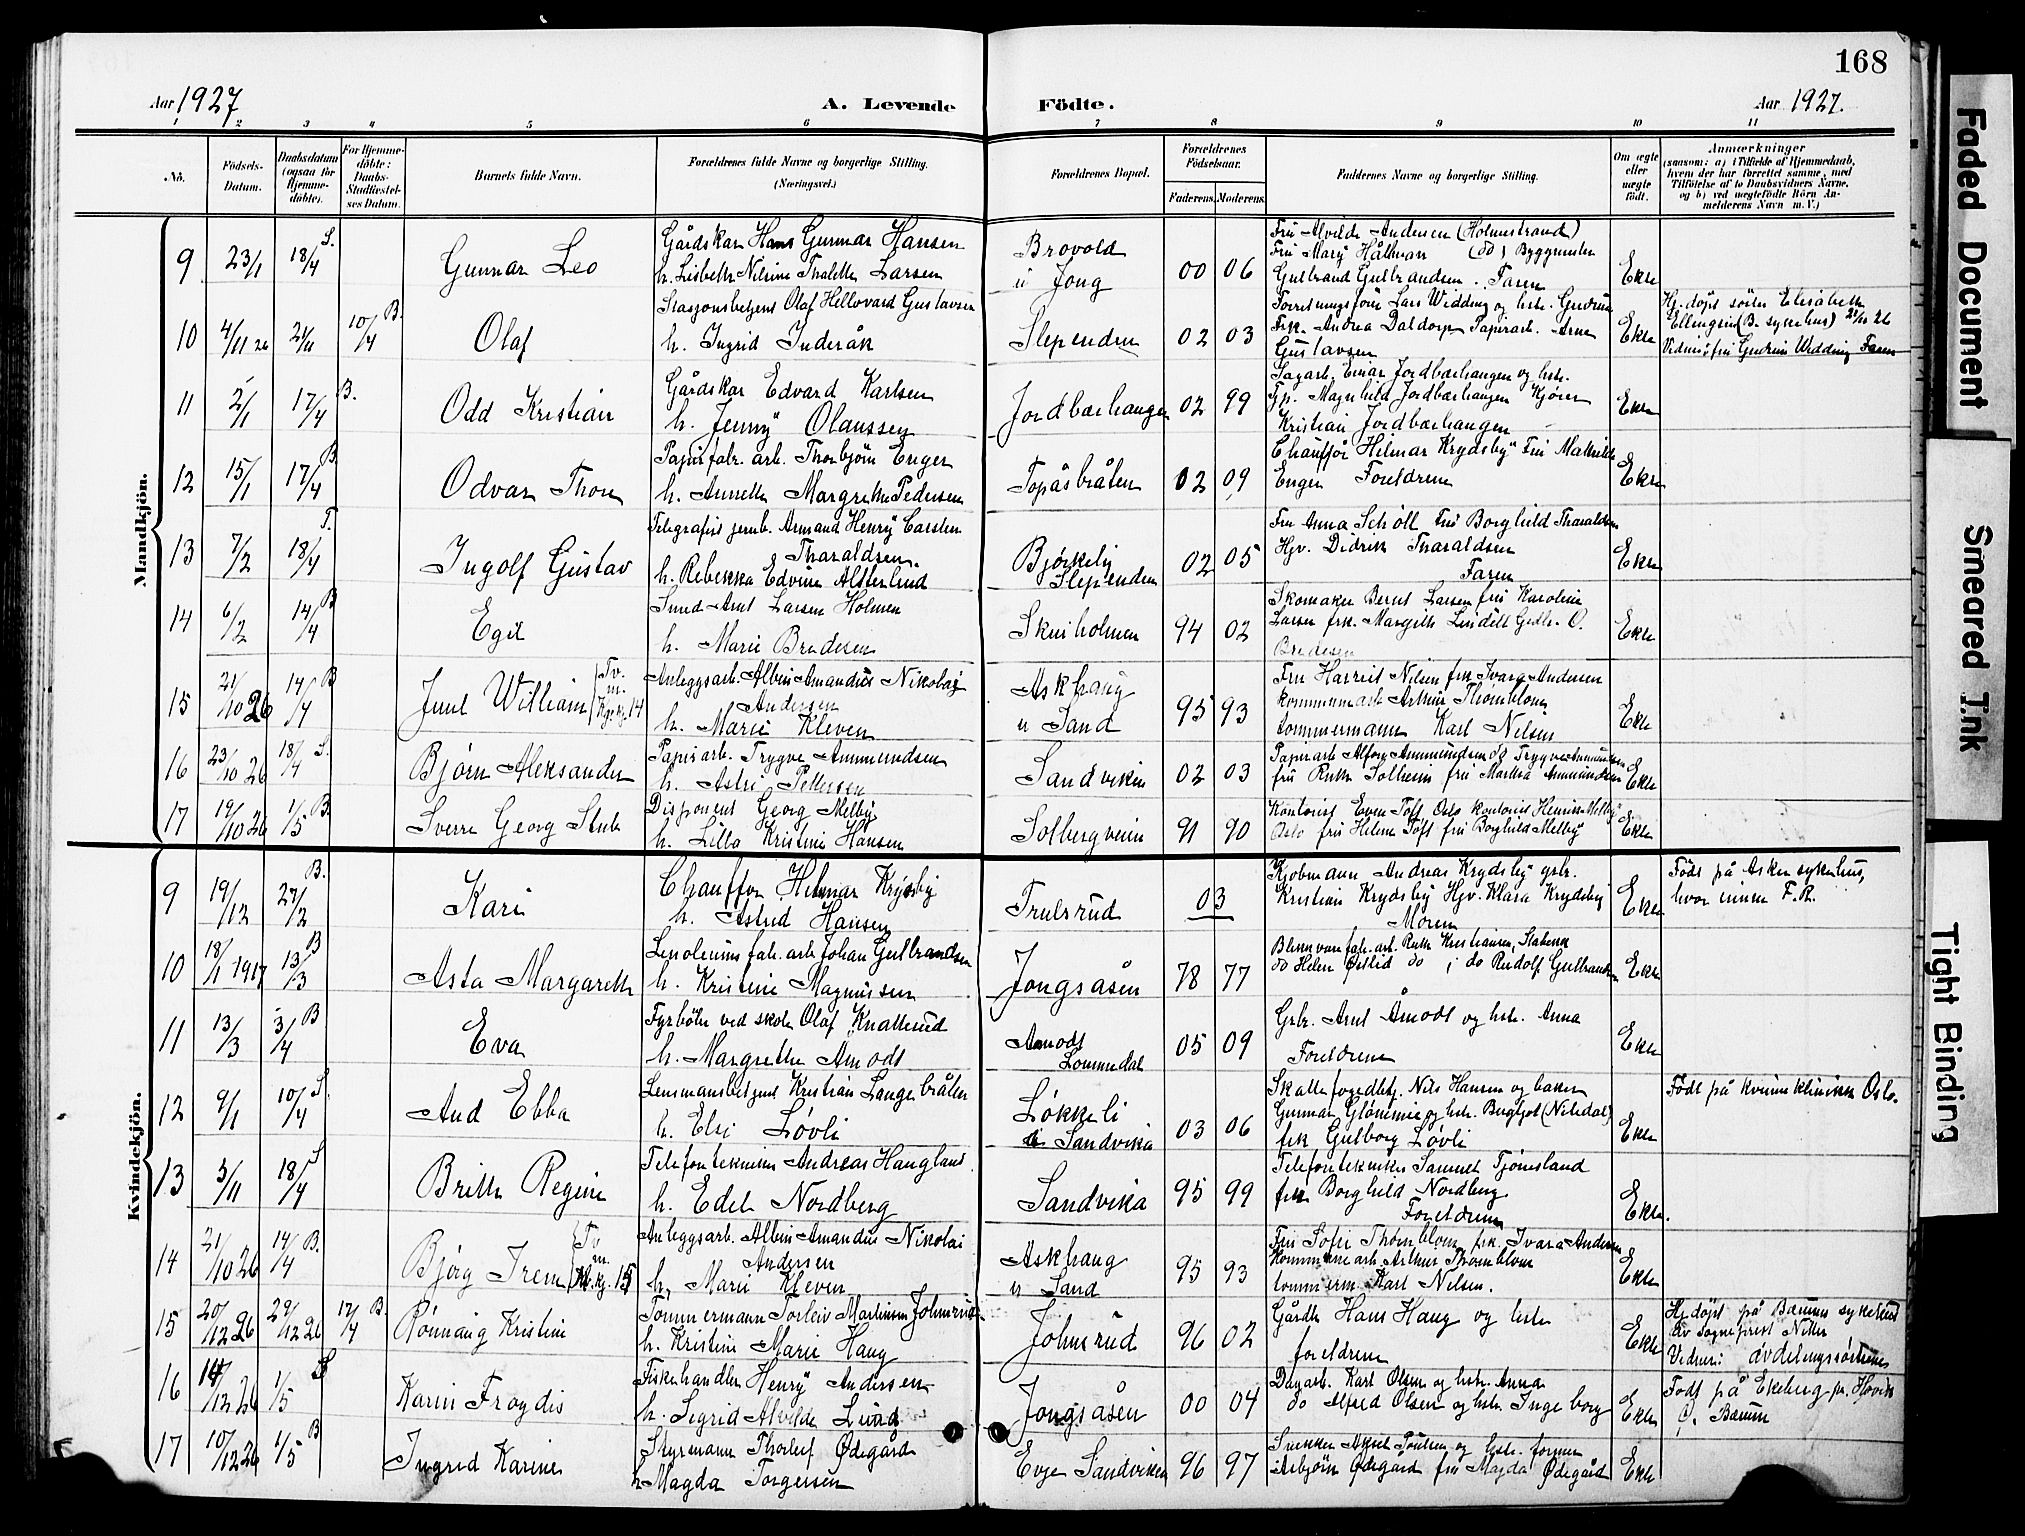 168
Aar 1927
A. Levende
Födte.
Aar 1927.
1 2 3 4 5 6 7 8 9 10 11
No.
Födsels-
Datum.
Daabsdatum
(ogsaa for
Hjemme-
döbte).
For Hjemme-
döbte:
Daabs-
Stadfæstel-
ses Datum.
Barnets fulde Navn.
Forældrenes fulde Navne og borgerlige Stilling.
(Næringsvei.)
Forældrenes Bopæl.
Forældrenes
Födselsaar.
Faderens. Moderens.
Faddernes Navne og borgerlige Stilling.
Om ægte
eller
uægte
født.
Anmærkninger
(saasom: a) i Tilfælde af Hjemmedaab,
hvem der har forrettet samme, med
Tilföielse af to Daabsvidners Navne,
og b) ved uægtefödte Börn An-
melderens Navn m. V.)
Mandkjön.
9 23/1 18/4 S. Gunnar Leo
Gårdskar Hans Gunnar Hansen
h. Lisbeth Nilsine Thalette Larsen
Brovold
u Jong
00 06
Fru Alvilde Andersen (Holmestrand)
Fru Mary Håkman (do) Byggmester
Gulbrand Gulbrandsen. Faren
Ekte
10 4/11 26 21/11 10/4 B. Olaf
Stasjonsbetjent Olaf Hellovard Gustavsen
h. Ingrid Inderåk
Slependen
02 03
Forretningsfører Lars Widding og hstr. Gudrun
Frk. Andrea Daldorp Papirarb. Arne
Gustavsen
Ekte
Hj. døpt søster Elisabeth
Ellingsen (B. sykehus) 21/11 26
Vidner: fru Gudrun Widding Faren
11 2/1 17/4 B. Odd Kristian
Gårdskar Edvard Karlsen
h. Jenny Olaussen
Jordbærhangen
02 99
Sagarb. Einar Jordbærhangen og hstr.
Tp. Magnhild Jordbærhangen Kjører
Kristian Jordbærhangen
Ekte
12 15/1 17/4 B. Odvar Thore
Papirfabr. arb. Thorbjørn Enger
h. Annette Margrethe Pedersen
Topåsbråten
02 09
Chauffør Hilmar Krydsby Fru Mathilde
Enger Foreldrene
Ekte
13 7/2 18/4 T. Ingolf Gustav
Telegrafist jernb. Armand Henry Carsten
Tharaldsen.
h. Rebekka Edvine Alsterlund
Bjørkely
Slependen
02 05
Fru Anna Schøll Fru Borghild Tharaldsen
Hjv. Didrik Tharaldsen
Faren
Ekte
14 6/2 14/4 B Egil
Smed Arnt Larsen Holmen
h. Marie Bredesen
Skuiholmen
94 02
Skomaker Bernt Larsen fru Karoline
Larsen frk. Margith Lindell Gbr. O.
Bredesen
Ekte
15 21/10 26 14/4 B Juul William Tv. m. 14
Anleggsarb. Albin Amandus Nikolaj
Andersen
h. Marie Kleven
Askhaug
u Sand
95 93
Fru Harriet Nilsen frk Ivara Andersen
kommunearb Arthur Thornblom
tømmermann Karl Nilsen
Ekte
16 23/10 26 18/4 S. Bjørn Aleksander
Papirarb. Trygve Ammundsen
h. Astri Pettersen
Sandviken
02 03
Papirarb Alfons Ammundsen do Trygve Ammundsen
fru Ruth Solheim fru Martha Ammundsen
Ekte
17 19/10 26 1/5 B. Sverre Georg Stub
Disponent Georg Melby
h. Lilla Kristine Hansen
Solbergveien
91 90
Kontorist Even Toft Oslo kontorist Henrik Melby
Oslo fru Helene Toft fru Borghild Melby
Ekte
Kvindekjön.
9 19/12 27/2 B. Kari
Chauffør Helmar Krydsby
h. Astrid Hansen
Trulsrud
03
Kjøbmann Andreas Krydsby gsbr.
Kristian Krydsby Hjv. Klara Krydsby
Moren
Ekte
Født på Asker sykehus,
hvor innen F. R.
10 18/1 1917 13/3 B Asta Margareth
Linoleums fabr. arb Johan Gulbrandsen
h. Kristine Magnussen
Jongsåsen
78 77
Blikkvare fabr. arb. Ruth Kristiansen, Stabekk
do Helen Østlid do ; do Rudolf Gulbrandsen
Ekte
11 13/3 3/4 B Eva
Fyrbøter ved skole Olaf Knatterud
h. Margrethe Åmodt
Åmodt
Lommedal
05 09
Gsbr. Arnt Åmodt og hstr. Anna
Foreldrene
Ekte
12 9/1 10/4 S. Aud Ebba
Lensmansbetjent Kristian Langebråten
h. Elsi Løvli
Løkkeli
u Sandvika
03 06
Skattefogedbtj. Nils Hansen og baker
Gunnar Glømmie og hstr. Bugljot (Nitedal)
frk Gulborg Løvli
Ekte
Født på kvinneklinikken Oslo.
13 3/11 18/4 S Brith Regine
Telefontekniker Andreas Haugland
h. Edel Nordberg
Sandvika
95 99
Telefontekniker Samuel Tjømsland
frk Borghild Nordberg
Foreldrene
Ekte.
14 21/10 26 14/4 B. Bjørg Irene Tv m. 15
Anleggsarb. Albin Amandus Nikolai
Andersen
h. Marie Kleven
Askhaug
u Sand
95 93
Fru Sofie Thornblom frk. Ivara Andersen
Kommunearb Arthur Thornblom
tømmerm. Karl Nilsen.
Ekte
15 20/12 26 29/12 26 17/4 B. Rønnaug Kristine
Tømmermann Torleiv Martinsen Johnsrud
h. Kristine Marie Haug
Johnsrud
96 02
Gårdbr Hans Haug og hstr
foreldrene
Ekte
Hj. døpt på Bærum sykehus
av Sogneprest Nitter
Vidner: avdelingssøstrene
16 14/12 26 1/5 S Karin Frøydis
Fiskehandler Henry Andersen
h. Sigrid Alvilde Lund
Jongsåsen
00 04
Dagarb. Karl Olsen og hstr. Anna
do Alfred Olsen og hstr. Ingeborg
Ekte
Født på Ekeberg pr. Høvik
Ø. Bærum
17 10/12 26 1/5 B Ingrid Karine
Styrmann Thorleif Ødegård
h Magda Torgersen
Evje Sandviken
96 97
Snekker Aksel Poulsen og hstr. former
Asbjørn Ødegård fru Magda Ødegård
Ekte
Faded Document
Smeared Ink
Tight Binding